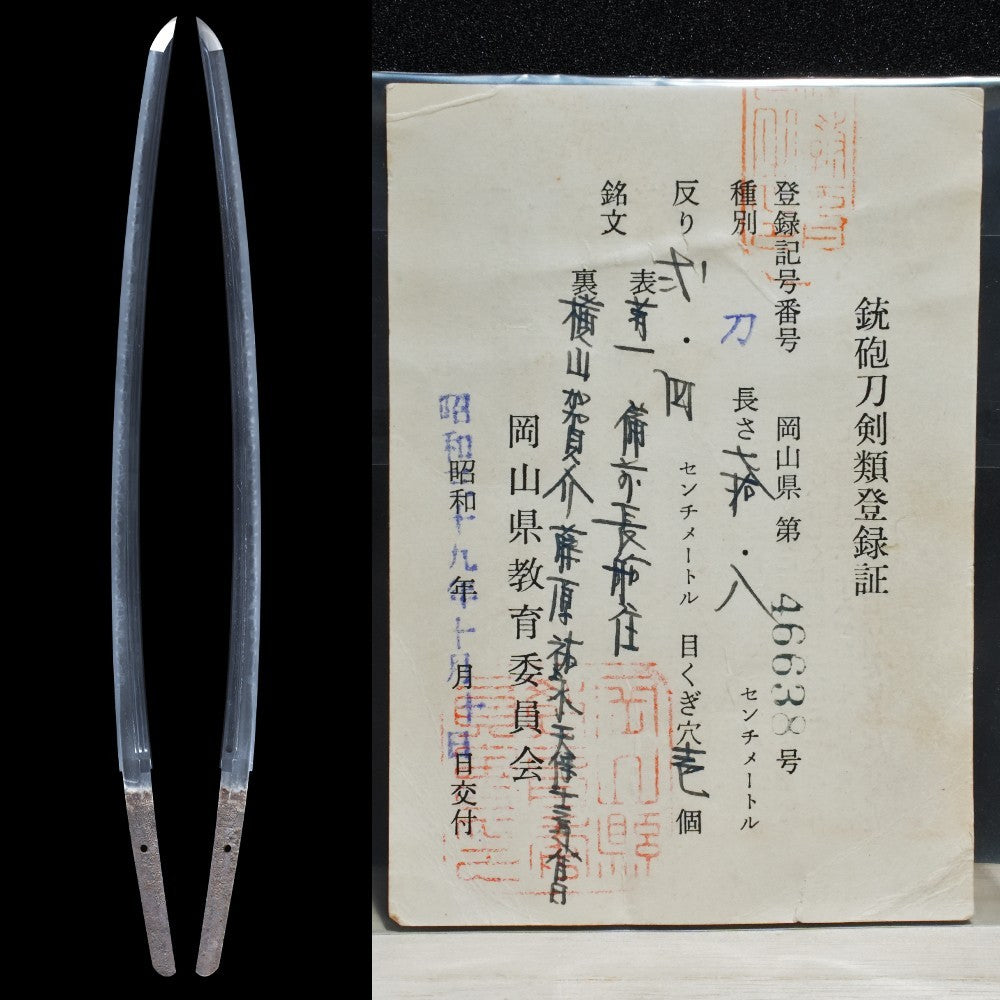 銃砲刀剣類登録証
登録記号番号 岡山県 第 46638 号
種別 刀 長さ 七拾・八 センチメートル
反り 弐・四 センチメートル 目くぎ穴 壱 個
銘文
表 一 備前長船住
裏 横山加賀介藤原祐永天保 八月日
岡山県教育委員会
昭和 年 月 日交付
昭和 十九年十月十日